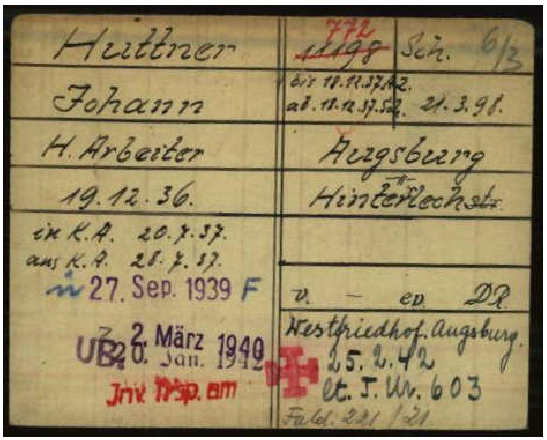 Huttner
772
11198 Sch. 6/3
Johann
bis 18.12.37 A2.
ab. 18.12.37. S2. 21.3.98.
H. Arbeiter
Augsburg
19.12.36.
Hinterlechstr.
in K.A. 20.7.37.
aus K.A. 28.7.37.
ü 27. Sep. 1939 F
v. - ev. DR.
2. März 1940
UB. 20. Jan. 1942
Inv. Trsp. am
Westfriedhof. Augsburg.
25.2.42
lt. T. Ur. 603